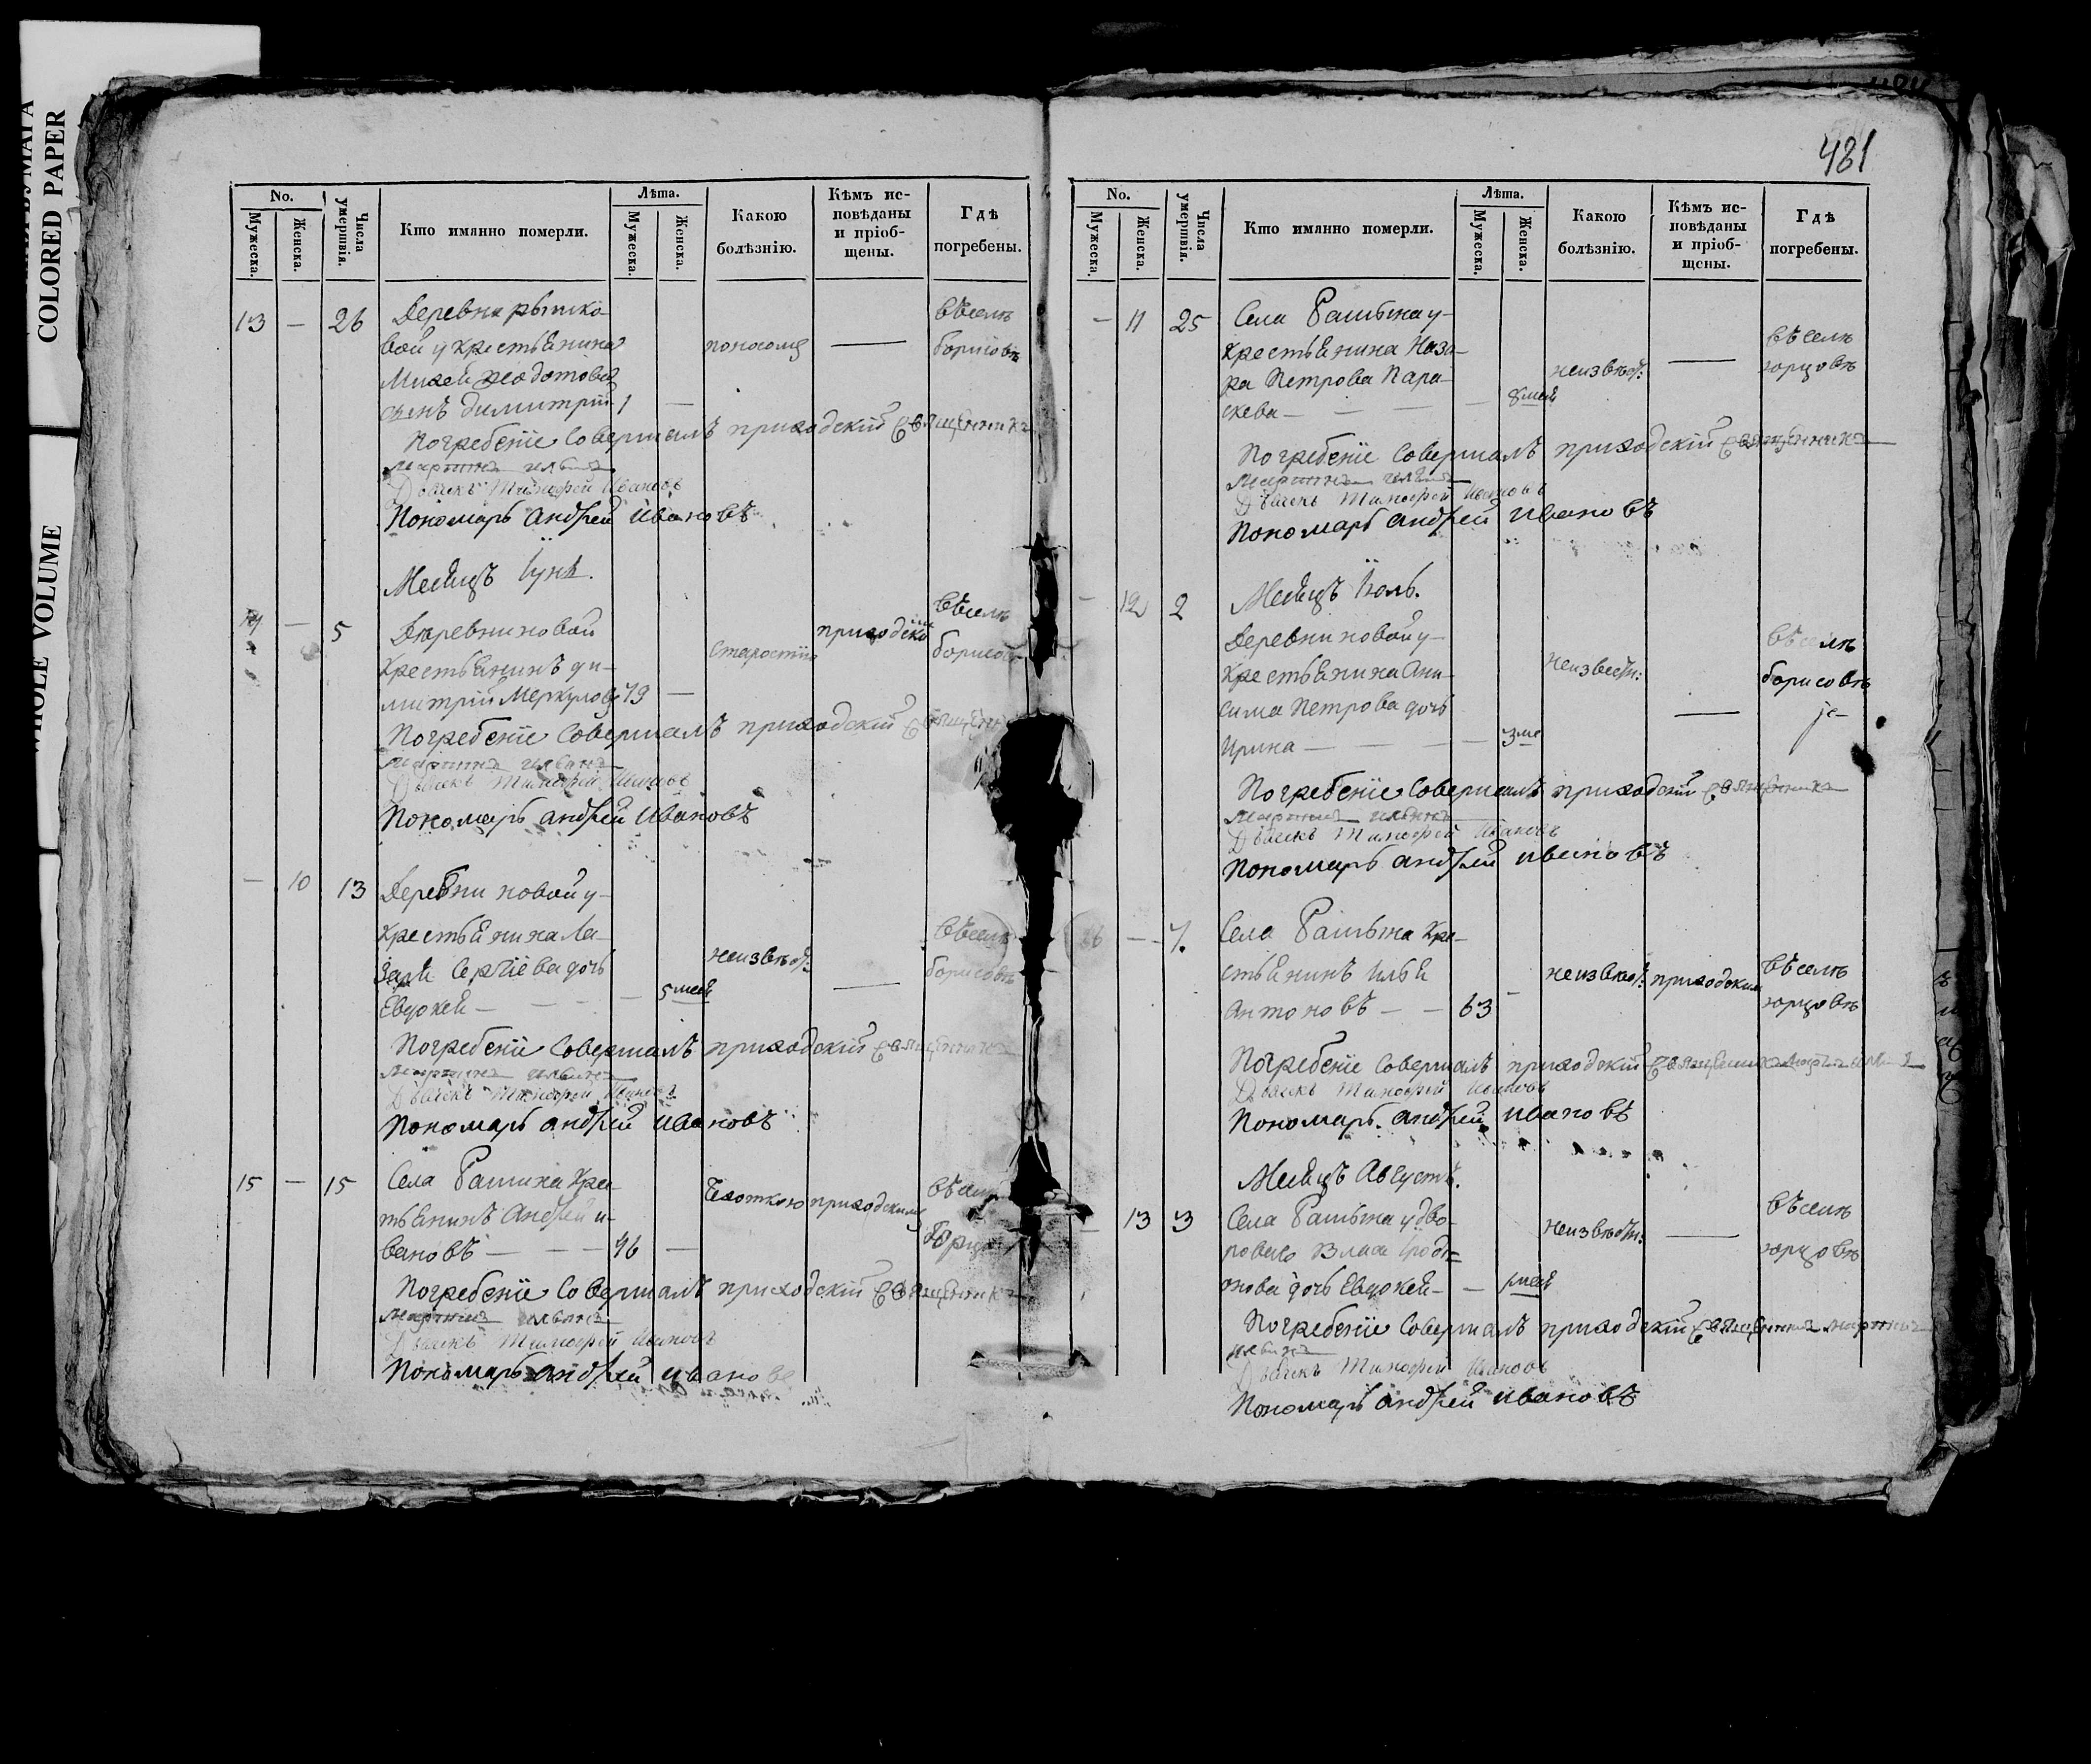 COLORED PAPER
WHOLE VOLUME
481
No.
Мужеска.
Женска.
Числа умершвія.
Кто имянно померли.
Лѣта.
Мужеска.
Женска.
Какою болѣзнію.
Кѣмъ исповѣданы и пріобщены.
Гдѣ погребены.
13 — 26 Деревни рышко-
вой у крестьянина
поносомъ —
въ селѣ
борисовѣ
сынъ димитрій 1 —
Погребенїе Совершалъ приходскїй Священникъ
мартинъ ильинъ
Дьячекъ Тимофей Ивановъ
Пономарь андрей Ивановъ
Месяцъ Іуня.
14 — 5 Деревни новой
крестьянинъ ди-
митрїй Меркуловъ 79 —
старостію
приходским
въ селѣ
борисовѣ
Погребенїе Совершалъ приходскїй Священник
мартинъ ильинъ
Дьячекъ Тимофей Ивановъ
Пономарь андрей Ивановъ
— 10 13 Деревни новой у
крестьянина Ла-
заря Сергїева дочь
Евдокея — — — — 5 меся
неизвѣст:
—
въ селѣ
борисовѣ
Погребенїе Совершалъ приходскїй Священникъ
мартинъ ильинъ
Дьячекъ Тимофей Ивановъ
Пономарь андрей Ивановъ
15 — 15 Села Рашина Крес
тьянинъ Андрей и-
вановъ — — — 46 —
Чахоткою
приходскимъ
въ селѣ
Юрцовѣ
Погребенїе Совершалъ приходскїй Священникъ
мартинъ ильинъ
Дьячекъ Тимофей Ивановъ
Пономарь андрей Ивановъ
No.
Мужеска.
Женска.
Числа умершвія.
Кто имянно померли.
Лѣта.
Мужеска.
Женска.
Какою болѣзнію.
Кѣмъ исповѣданы и пріобщены.
Гдѣ погребены.
— 11 25 Села Рашьина у-
крестьянина Наза-
ра Петрова Пара-
скева — — — — 8 меся
неизвѣст:
—
въ селѣ
юрцовѣ
Погребенїе Совершалъ приходскїй Священникъ
мартинъ ильинъ
Дьячекъ Тимофей Ивановъ
Пономарь андрей Ивановъ
Месяцъ Іюль.
— 12 2
Деревни новой у-
крестьянина Они-
сима Петрова дочь
Ирина — — — — 3 ме
неизвест:
—
въ селѣ
борисовѣ
же
Погребенїе Совершалъ приходскїй Священникъ
мартинъ ильинъ
Дьячекъ Тимофей Ивановъ
Пономарь андрей Ивановъ
16 — 7. Села Рашьина Кре-
стьянинъ Илья
Антоновъ — — 63 —
неизвѣст:
приходским
въ селѣ
юрцовѣ
Погребенїе Совершалъ приходскїй Священникъ мартинъ ильинъ
Дьячекъ Тимофей Ивановъ
Пономарь андрей Ивановъ
Месяцъ Августъ.
— 13 3 Села Рашьина у дво-
роваго Власа Іроди-
онова дочь Евдокея — —
неизвѣстн:
—
въ селѣ
юрцовѣ
Погребенїе Совершалъ приходскїй Священникъ мартинъ
ильинъ
Дьячекъ Тимофей Ивановъ
Пономарь андрей Ивановъ